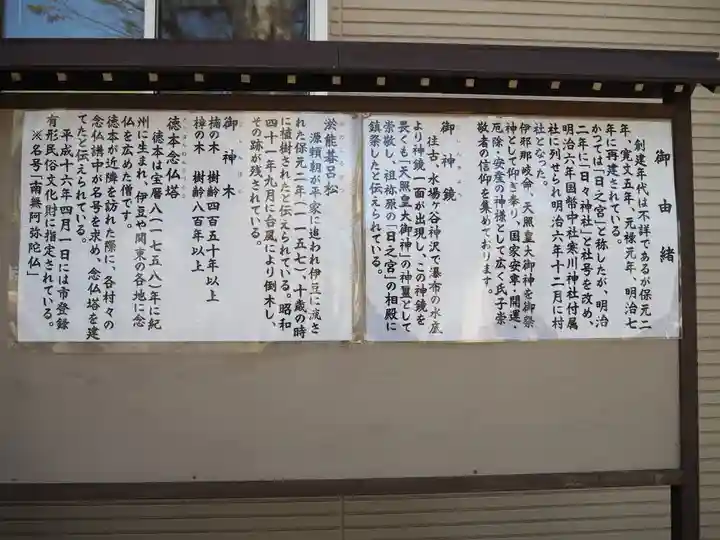 御由緒
創建年代は不詳であるが保元二
年、寛文五年、元禄元年、明治七
年に再建されている。
かつては「日之宮」と称したが、明治
二年に「日々神社」と社号を改め、
明治六年国幣中社寒川神社付属
社に列せられ明治六年十二月に村
社となった。
伊邪那岐命、天照皇大御神を御祭
神として仰ぎ奉り、国家安寧・開運・
厄除・安産の神様として広く氏子崇
敬者の信仰を集めております。
御神鏡
往古、水場ヶ谷神沢で瀑布の水底
より神鏡一面が出現し、この神鏡を
畏くも「天照皇大御神」の神璽として
崇敬し、祖祢原の「日之宮」の相殿に
鎮祭したと伝えられている。
淤能碁呂松
源頼朝が平家に追われ伊豆に流さ
れた保元二年(一一五七)、十歳の時
に植樹されたと伝えられている。昭和
四十一年九月に台風により倒木し、
その跡が残されている。
御神木
楠の木 樹齢四百五十年以上
樟の木 樹齢八百年以上
徳本念仏塔
徳本は宝暦八(一七五八)年に紀
州に生まれ、伊豆や関東の各地に念
仏を広めた僧です。
徳本が近隣を訪れた際に、各村々の
念仏講中が名号を求め、念仏塔を建
てたと伝えられている。
平成十六年四月一日には市登録
有形民俗文化財に指定されている。
※名号「南無阿弥陀仏」